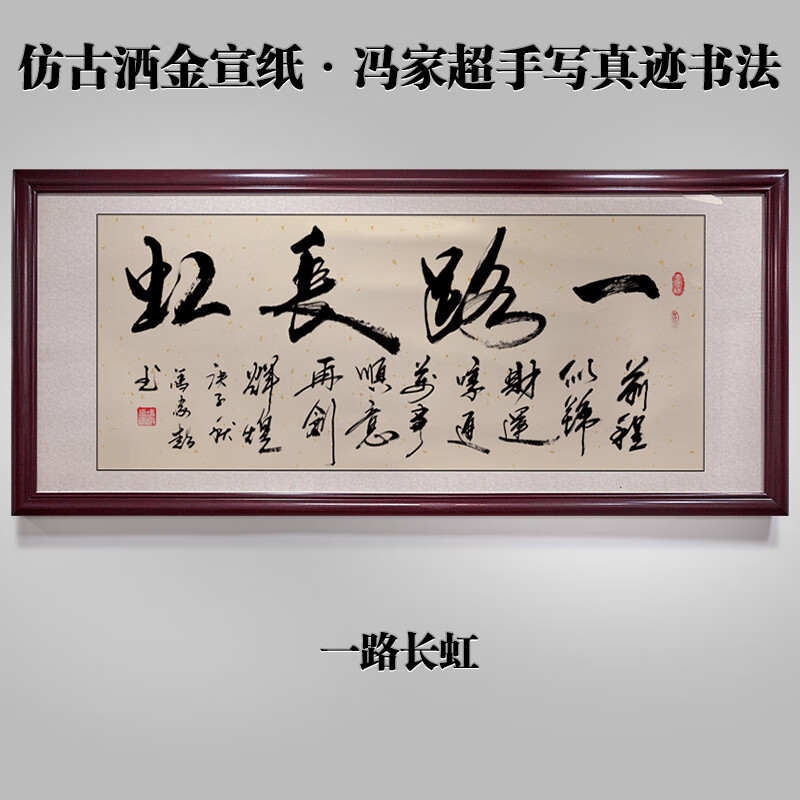 仿古洒金宣纸·冯家超手写真迹书法
一路長虹
前程
似錦
財運
亨通
萬事
順意
再創
輝煌
庚子秋
馮家超
书
一路长虹